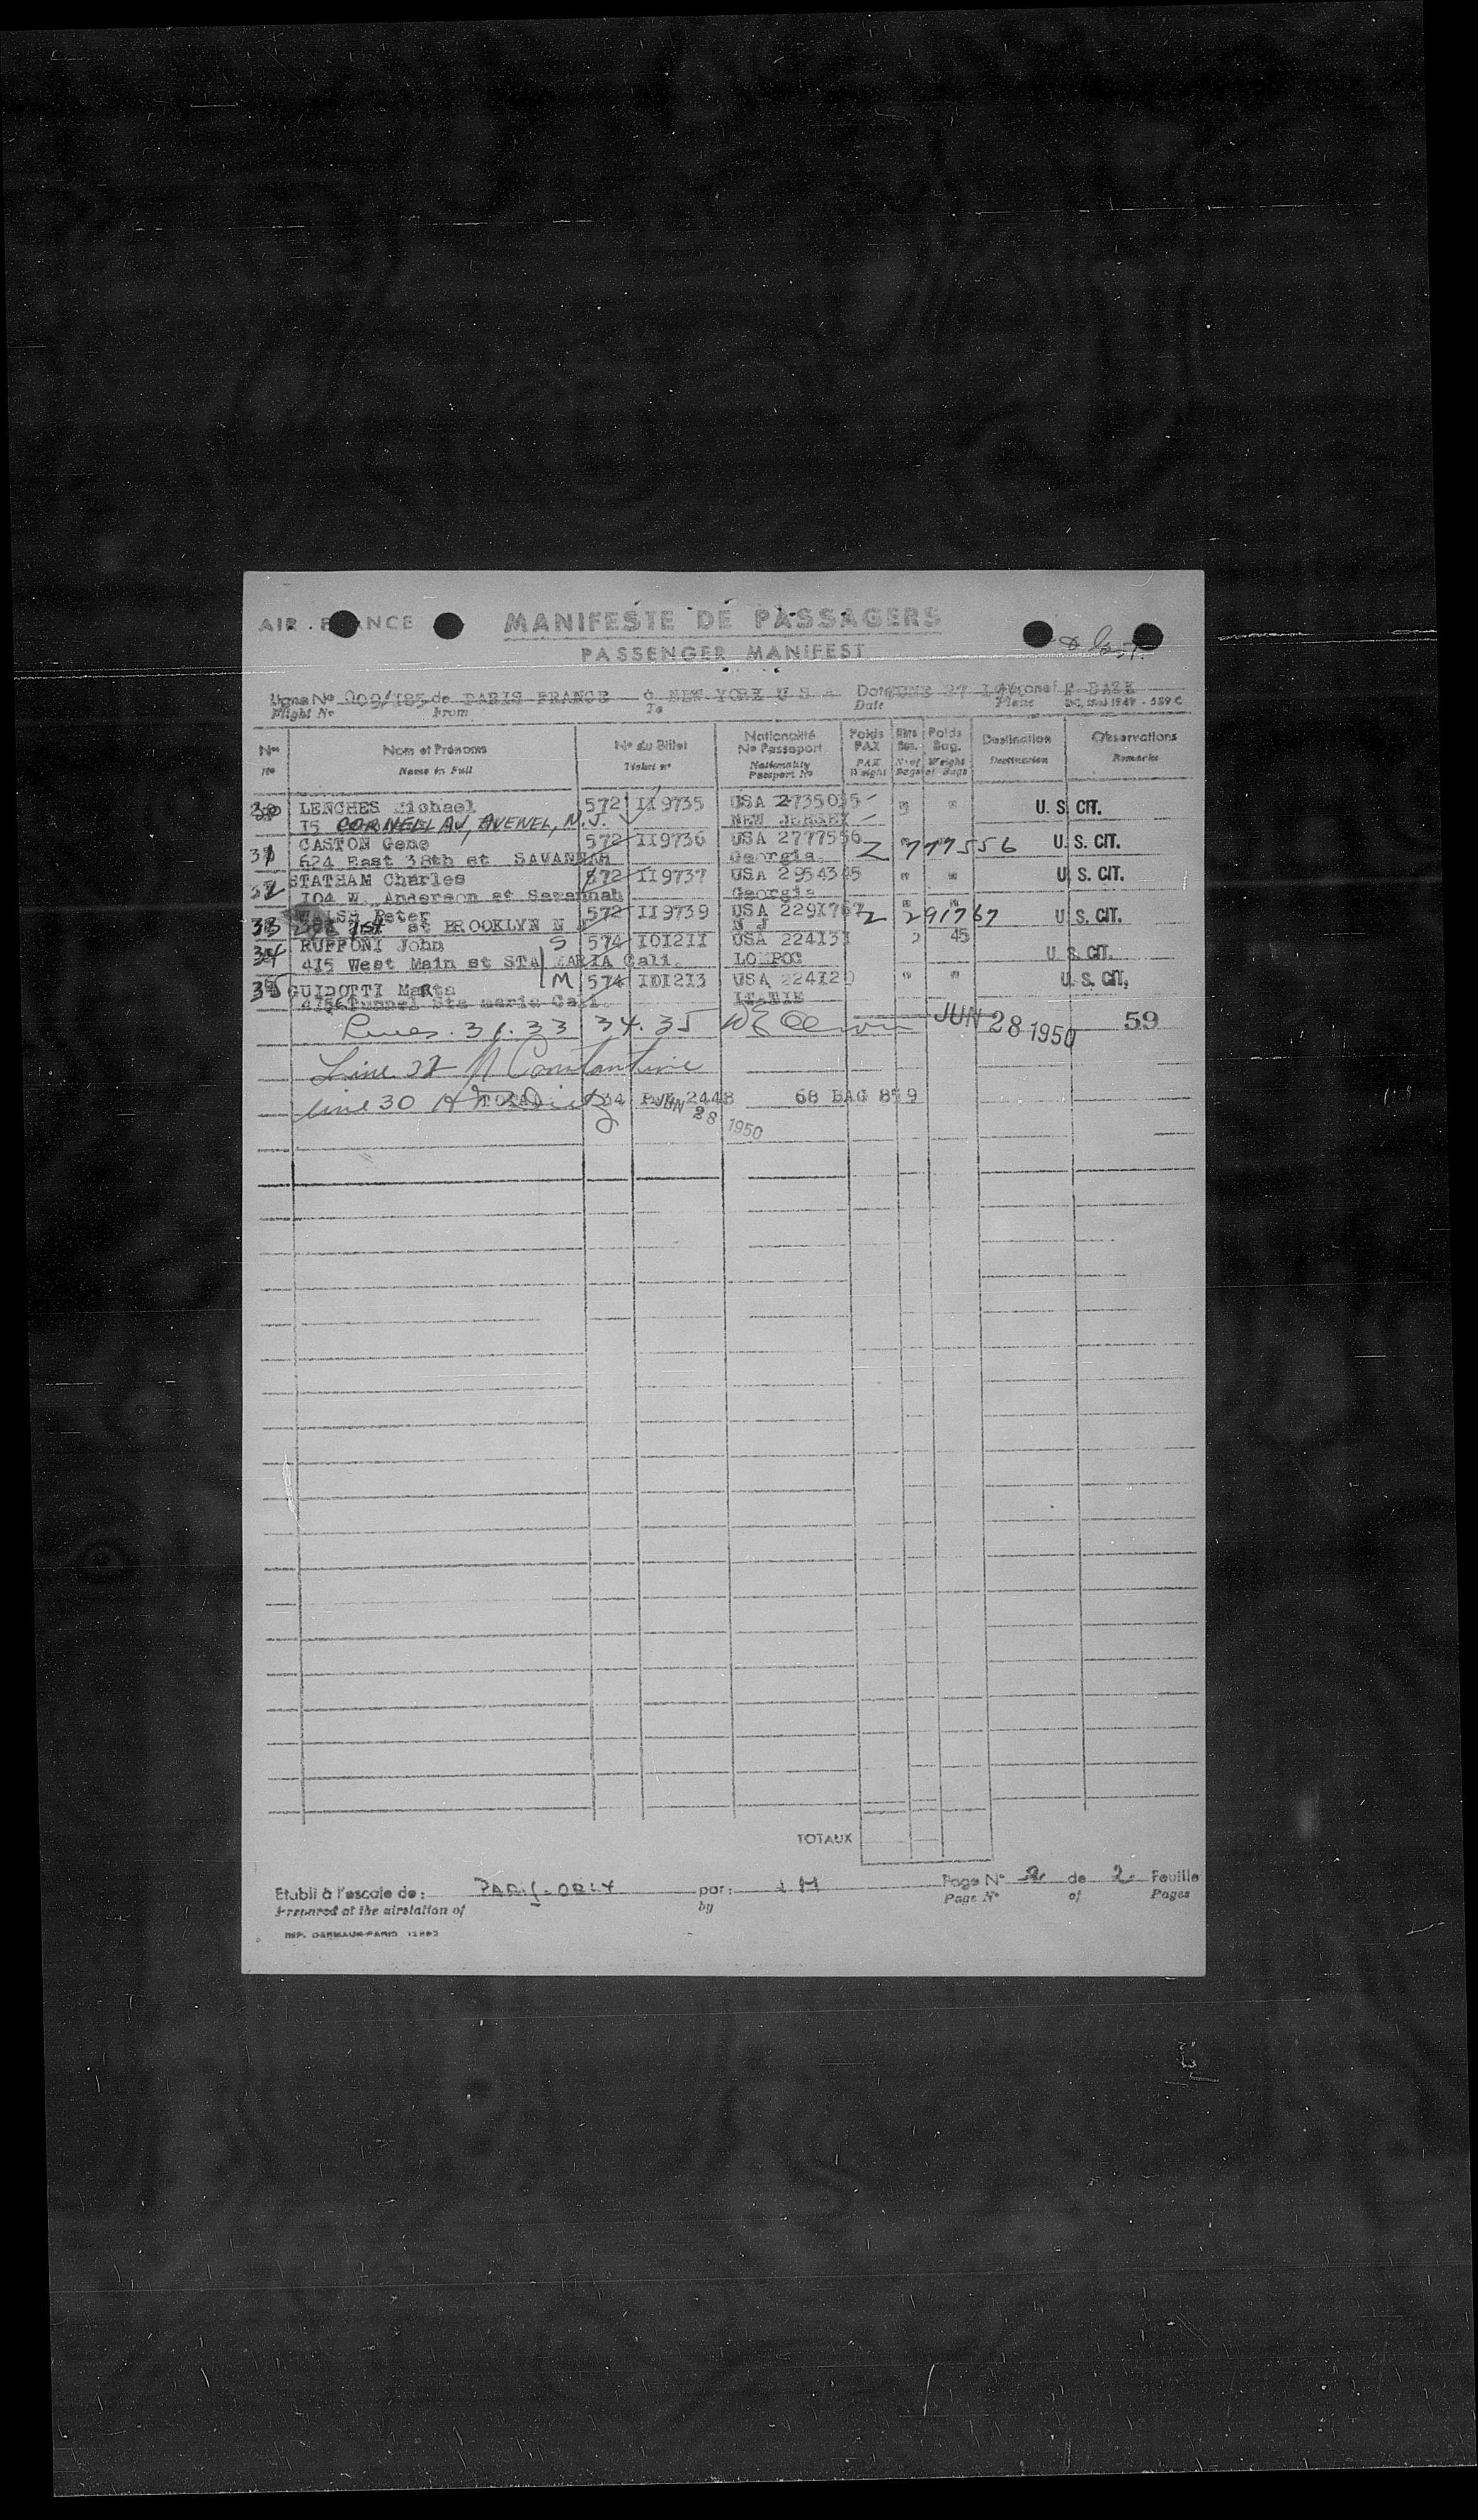 AIR FRANCE MANIFESTE DE PASSAGERS
PASSENGER MANIFEST & last.
Ligne No 009/I85 de PARIS FRANCE à NEW YORK U S A Date JUNE 27
Flight Nr From To Date Plane
Nos Nom et Prénoms No du Billet Nationalité No Passeport Poids PAX Nbre Bag. Poids Bag. Destination Observations
No Name in Full Ticket no Nationality Passport No PAX Weight No of Bags Weight of Bags Destination Remarks
30 LENCHES Michael 572 II9735 USA 2735035 " " U. S. CIT.
I5 CORNELL AV, AVENEL, N.J. NEW JERSEY
31 CASTON Gene 572 II9736 USA 2777556 2777556 U. S. CIT.
624 East 38th st SAVANNAH Georgia
32 STATHAM Charles 572 II9737 USA 2954345 " " U. S. CIT.
I04 W. Anderson st Savannah Georgia
33 WALSH Peter 572 II9739 USA 229I767 2291767 U. S. CIT.
st BROOKLYN N J N J
34 RUFFONI John S 574 I0I2II USA 224I3I 2 45 U. S. CIT.
4I5 West Main st STA MARIA Cali. LOMPOC
35 GUIDOTTI Marta M 574 I0I2I3 USA 224I20 " " U. S. CIT,
Tunnel Sta maria Cali.
Lines. 31. 33 34. 35 JUN 28 1950 59
Line 32 N Constantine
line 30 TOTAL 34 PAX 2448 68 BAG 859
JUN 28 1950
TOTAUX
Etabli à l'escale de: PARIS-ORLY par: Page No 2 de 2 Feuille
Prepared at the airstation of by Page No of Pages
IMP. DARMAUX-PARIS